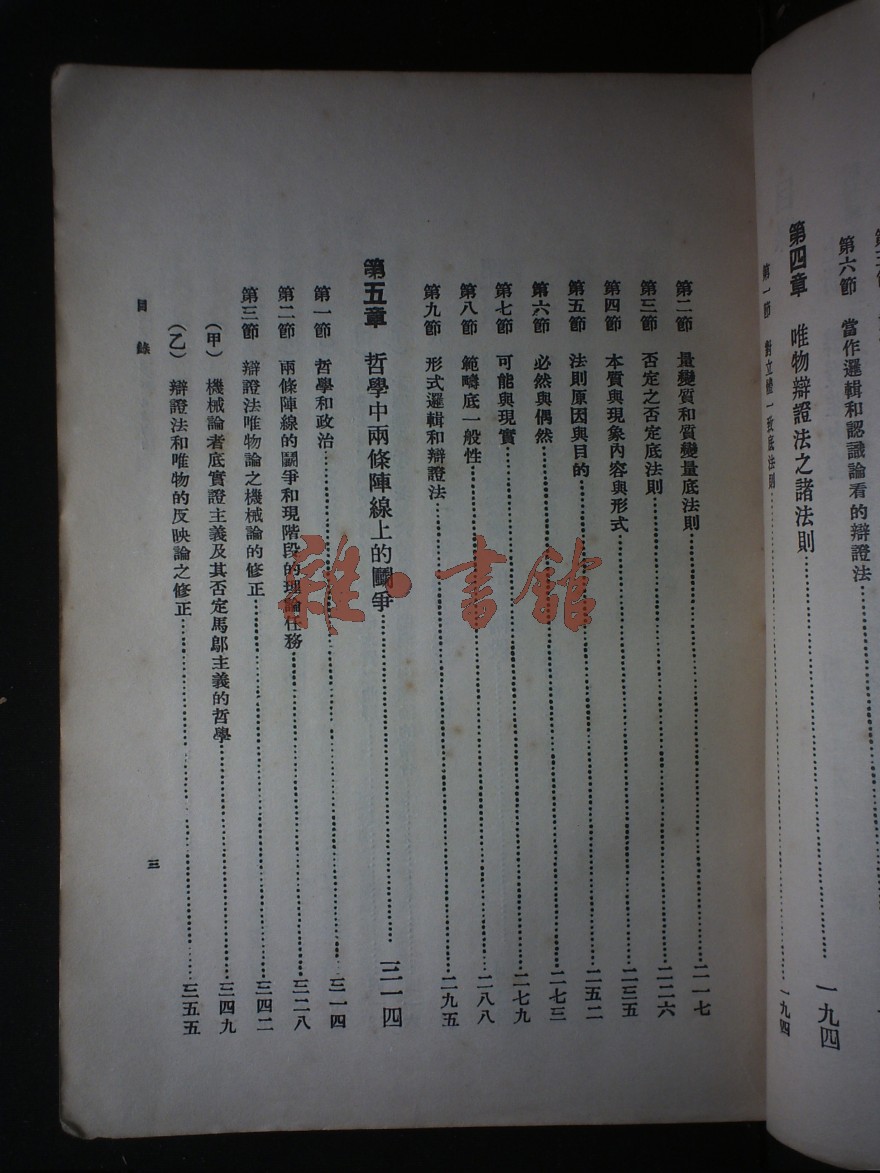 第六節 當作邏輯和認識論看的辯證法
第四章 唯物辯證法之諸法則……一九四
第一節 對立體一致底法則……一九四
第二節 量變質和質變量底法則……二一七
第三節 否定之否定底法則……二二六
第四節 本質與現象內容與形式……二三五
第五節 法則原因與目的……二五二
第六節 必然與偶然……二七三
第七節 可能與現實……二七九
第八節 範疇底一般性……二八八
第九節 形式邏輯和辯證法……二九五
第五章 哲學中兩條陣線上的鬭爭……三一四
第一節 哲學和政治……三一四
第二節 兩條陣線的鬭爭和現階段的理論任務……三二八
第三節 辯證法唯物論之機械論的修正……三四二
（甲） 機械論者底實證主義及其否定馬鄔主義的哲學……三四九
（乙） 辯證法和唯物的反映論之修正……三五五
目錄 三
雜·書館